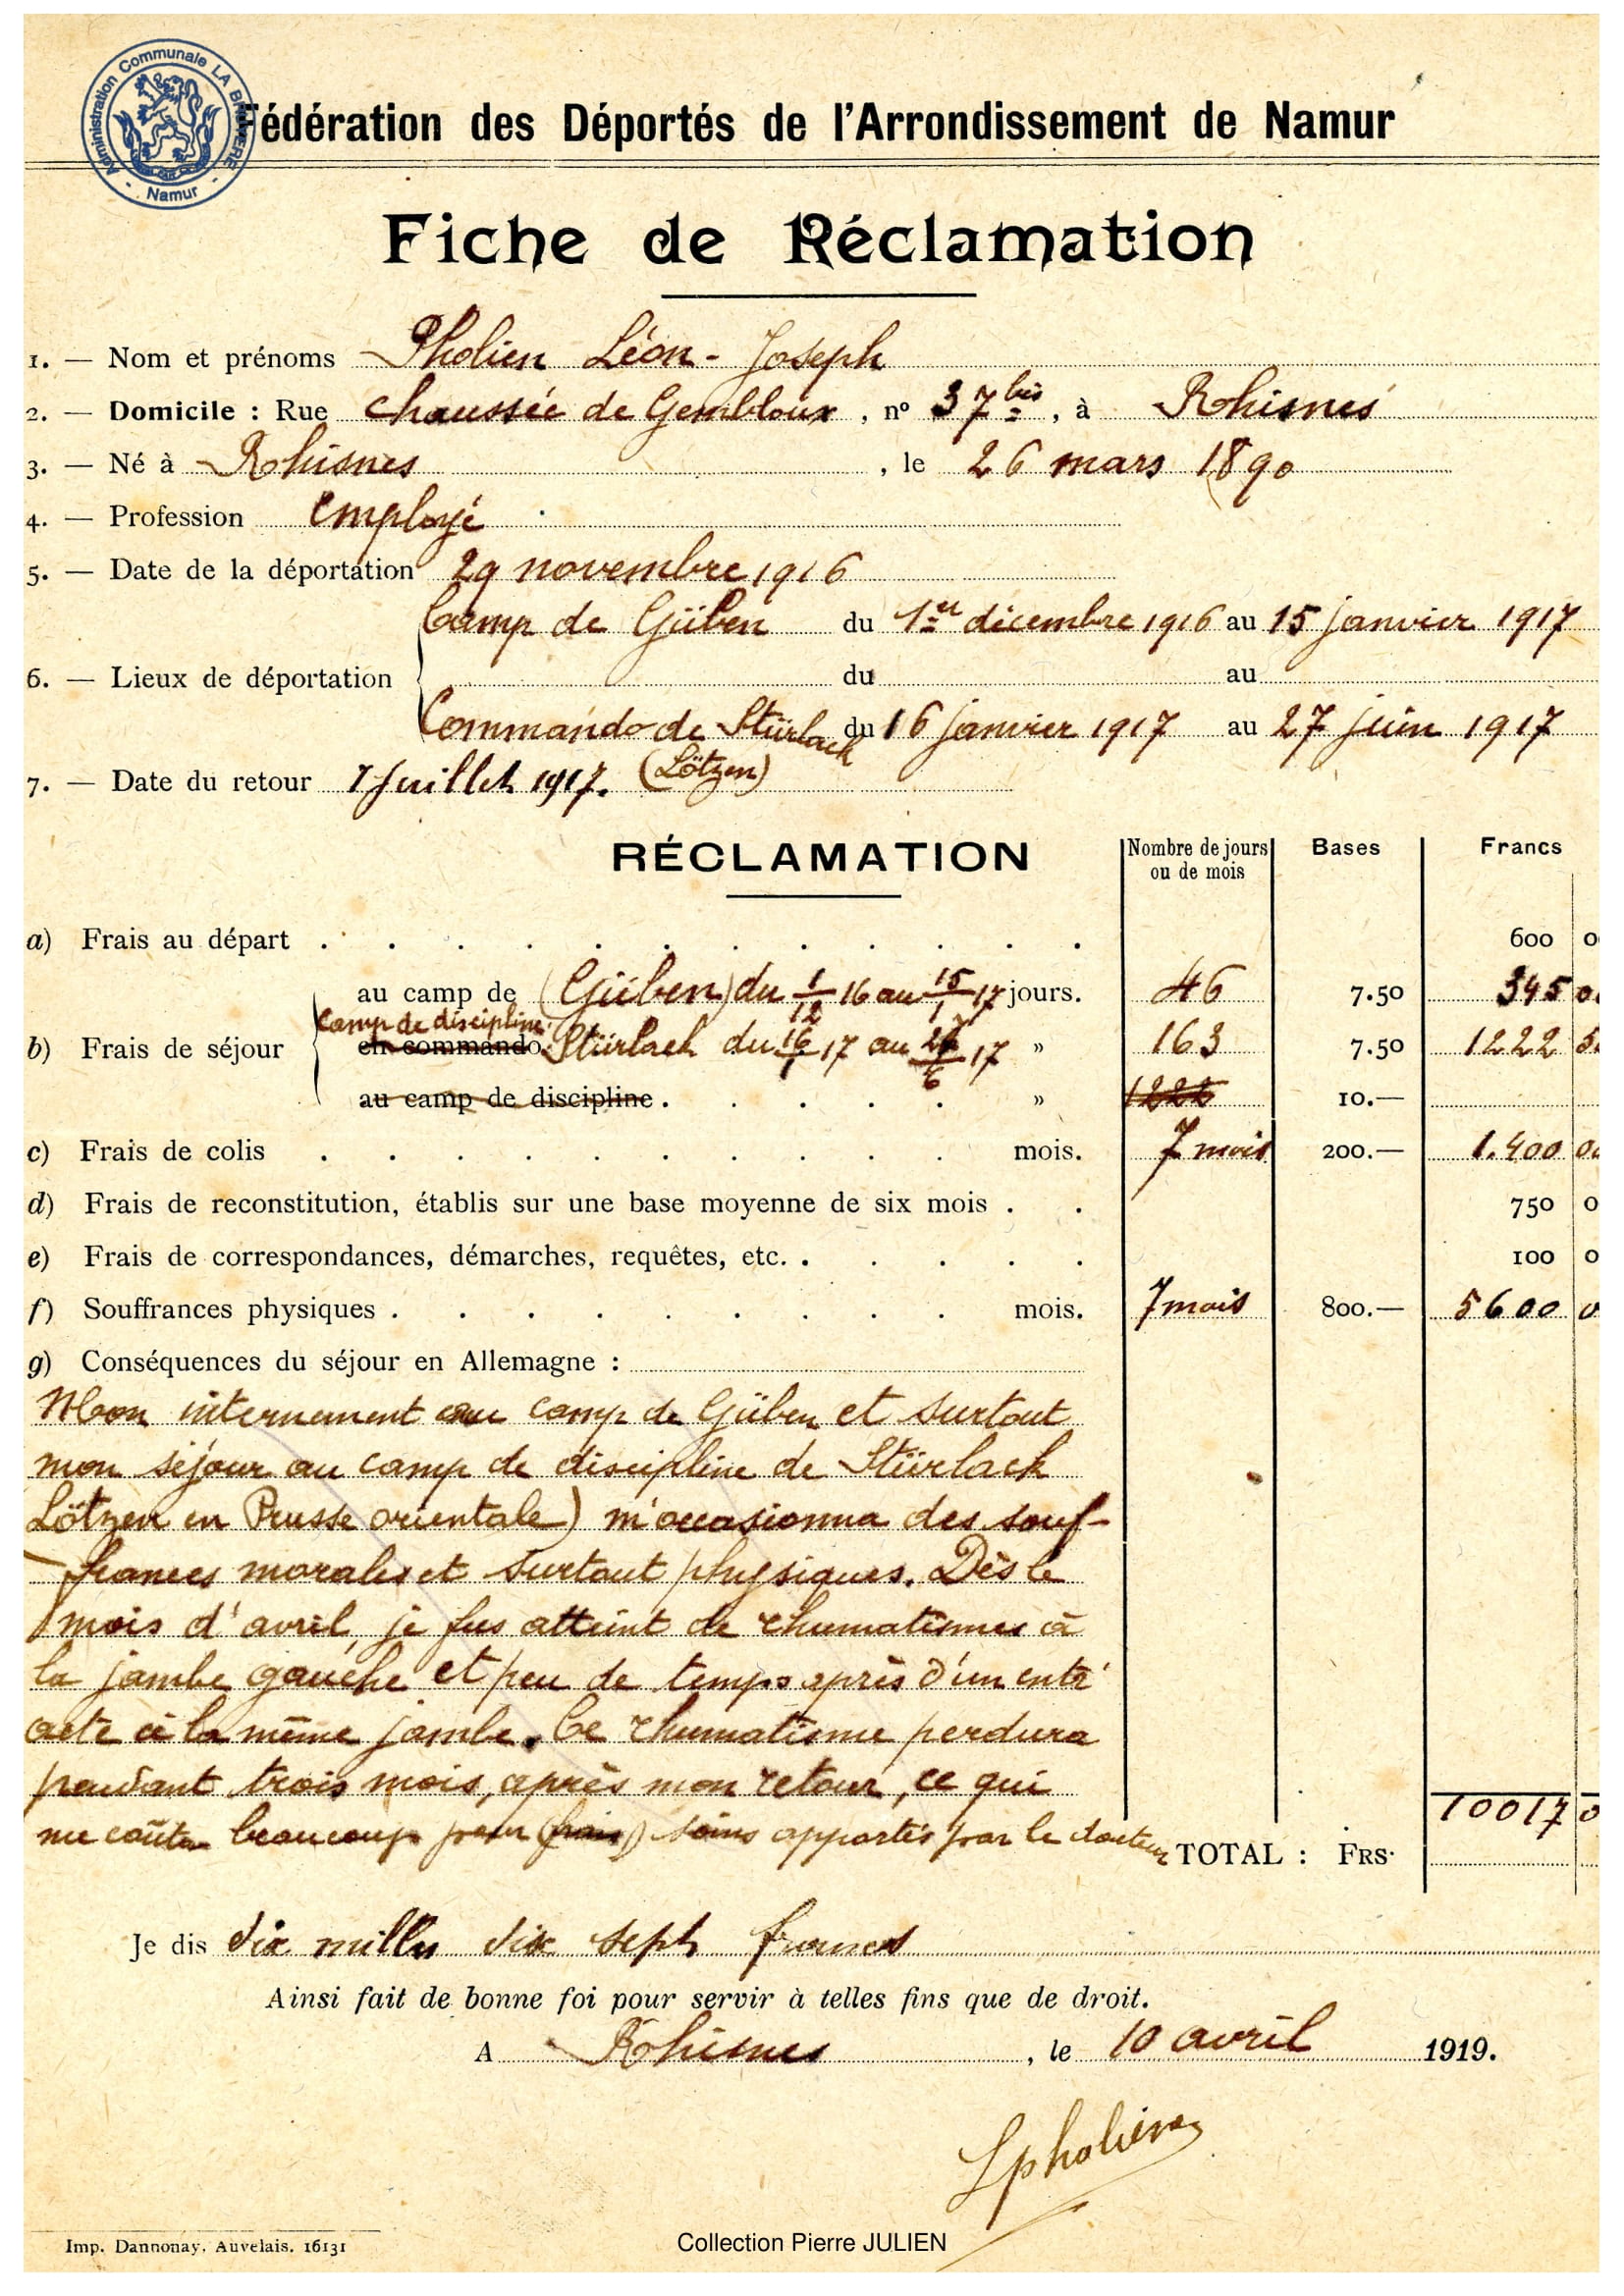 Administration Communale LA BRUYERE - Namur -
Fédération des Déportés de l'Arrondissement de Namur
Fiche de Réclamation
1. — Nom et prénoms Pholien Léon - Joseph
2. — Domicile : Rue chaussée de Gembloux, n° 37 bis, à Rhisnes
3. — Né à Rhisnes, le 26 mars 1890
4. — Profession employé
5. — Date de la déportation 29 novembre 1916
Camp de Güben du 1er décembre 1916 au 15 janvier 1917
6. — Lieux de déportation du au
Commando de Stürlack du 16 janvier 1917 au 27 juin 1917
(Lötzen)
7. — Date du retour 1 Juillet 1917.
RÉCLAMATION
Nombre de jours ou de mois
Bases
Francs
a) Frais au départ 600 0
au camp de (Güben) du 1/12 16 au 15/1 17 jours. 46 7.50 345 0
Camp de discipline
b) Frais de séjour en commando Stürlack du 16/1 17 au 27/6 17 » 163 7.50 1222 5
au camp de discipline . » 1222 10.—
c) Frais de colis mois. 7 mois 200.— 1.400 00
d) Frais de reconstitution, établis sur une base moyenne de six mois . 750 0
e) Frais de correspondances, démarches, requêtes, etc. . 100 0
f) Souffrances physiques . mois. 7 mois 800.— 5600 0
g) Conséquences du séjour en Allemagne :
Mon internement au camp de Güben et surtout
mon séjour au camp de discipline de Stürlack
Lötzen en Prusse orientale) m'occasionna des souf-
frances morales et surtout physiques. Dès le
mois d'avril, je fus atteint de rhumatismes à
la jambe gauche et peu de temps après d'un enté
acte à la même jambe. Ce rhumatisme perdura
pendant trois mois, après mon retour, ce qui
me coûta beaucoup pour (frais) soins apportés par le docteur
10017 0
TOTAL : FRS.
Je dis dix mille dix sept francs
Ainsi fait de bonne foi pour servir à telles fins que de droit.
A Rhisnes, le 10 avril 1919.
LPholien
Imp. Dannonay. Auvelais. 16131
Collection Pierre JULIEN